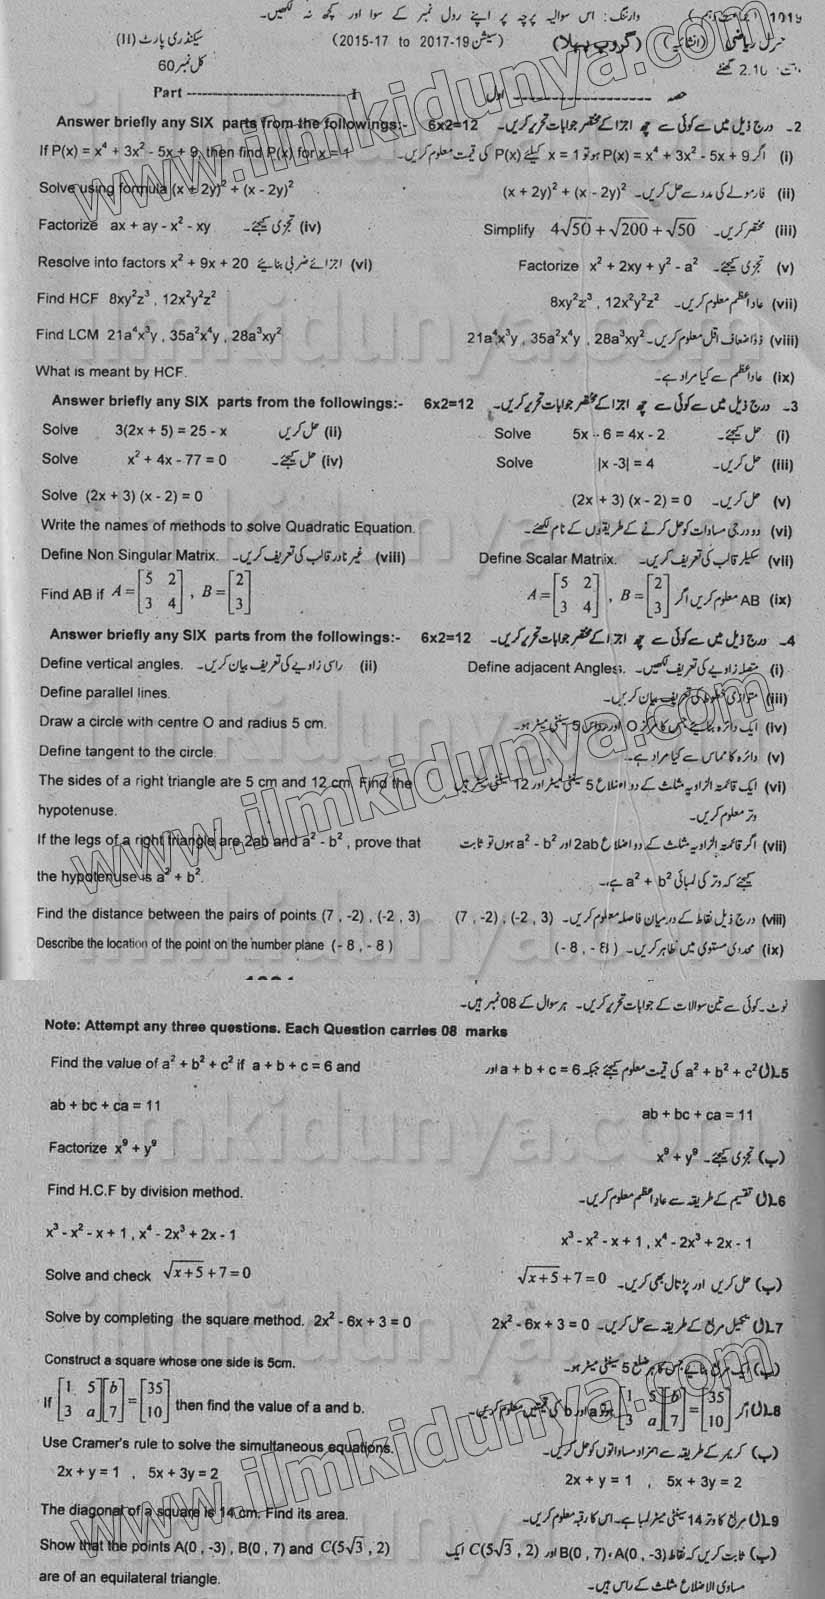 1019 وارننگ: اس سوالیہ پرچہ پر اپنے رول نمبر کے سوا اور کچھ نہ لکھیں۔
جنرل ریاضی (انشائیہ) (گروپ پہلا) (سیشن 2015-17 to 2017-19) سیکنڈری پارٹ (II)
2.10 گھنٹے کل نمبر 60
حصہ اول Part I
Answer briefly any SIX parts from the followings:- 6x2=12 2۔ درج ذیل میں سے کوئی سے چھ اجزا کے مختصر جوابات تحریر کریں۔
If P(x) = x⁴ + 3x² - 5x + 9, then find P(x) for x = 1 (i) اگر P(x) = x⁴ + 3x² - 5x + 9 ہو تو x = 1 کیلئے P(x) کی قیمت معلوم کریں۔
Solve using formula (x + 2y)² + (x - 2y)² (ii) فارمولے کی مدد سے حل کریں۔ (x + 2y)² + (x - 2y)²
Factorize ax + ay - x² - xy (iv) تجزی کیجئے۔ Simplify 4√50 + √200 + √50 (iii) مختصر کریں۔
Resolve into factors x² + 9x + 20 (vi) اجزائے ضربی بنائیے Factorize x² + 2xy + y² - a² (v) تجزی کیجئے۔
Find HCF 8xy²z³ , 12x²y²z² (vii) عاد اعظم معلوم کریں۔ 8xy²z³ , 12x²y²z²
Find LCM 21a⁴x³y , 35a²x⁴y , 28a³xy² (viii) ذواضعاف اقل معلوم کریں۔ 21a⁴x³y , 35a²x⁴y , 28a³xy²
What is meant by HCF. (ix) عاد اعظم سے کیا مراد ہے۔
Answer briefly any SIX parts from the followings:- 6x2=12 3۔ درج ذیل میں سے کوئی سے چھ اجزا کے مختصر جوابات تحریر کریں۔
Solve 3(2x + 5) = 25 - x (ii) حل کریں Solve 5x - 6 = 4x - 2 (i) حل کیجئے۔
Solve x² + 4x - 77 = 0 (iv) حل کیجئے۔ Solve |x -3| = 4 (iii) حل کریں۔
Solve (2x + 3) (x - 2) = 0 (v) حل کریں۔ (2x + 3) (x - 2) = 0
Write the names of methods to solve Quadratic Equation. (vi) دو درجی مساوات کو حل کرنے کے طریقوں کے نام لکھئے۔
Define Non Singular Matrix. (viii) غیر نادر قالب کی تعریف کریں۔ Define Scalar Matrix. (vii) سکیلر قالب کی تعریف کریں۔
Find AB if A = [5 2; 3 4] , B = [2; 3] (ix) AB معلوم کریں اگر A = [5 2; 3 4] , B = [2; 3]
Answer briefly any SIX parts from the followings:- 6x2=12 4۔ درج ذیل میں سے کوئی سے چھ اجزا کے مختصر جوابات تحریر کریں۔
Define vertical angles. (ii) راسی زاویے کی تعریف بیان کریں۔ Define adjacent Angles. (i) متصلہ زاویے کی تعریف لکھیں۔
Define parallel lines. (iii) متوازی خطوط کی تعریف بیان کریں۔
Draw a circle with centre O and radius 5 cm. (iv) ایک دائرہ بنائیے جس کا مرکز O اور رداس 5 سینٹی میٹر ہو۔
Define tangent to the circle. (v) دائرہ کا مماس سے کیا مراد ہے۔
The sides of a right triangle are 5 cm and 12 cm. Find the (vi) ایک قائمتہ الزاویہ مثلث کے دو اضلاع 5 سینٹی میٹر اور 12 سینٹی میٹر ہیں
hypotenuse. وتر معلوم کریں۔
If the legs of a right triangle are 2ab and a² - b² , prove that (vii) اگر قائمتہ الزاویہ مثلث کے دو اضلاع 2ab اور a² - b² ہوں تو ثابت
the hypotenuse is a² + b². کیجئے کہ وتر کی لمبائی a² + b² ہے۔
Find the distance between the pairs of points (7 , -2) , (-2 , 3) (viii) درج ذیل نقاط کے درمیان فاصلہ معلوم کریں۔ (7 , -2) , (-2 , 3)
Describe the location of the point on the number plane (- 8 , - 8 ) (ix) عددی مستوی میں ظاہر کریں۔ (- 8 , - 8)
نوٹ۔ کوئی سے تین سوالات کے جوابات تحریر کریں۔ ہر سوال کے 08 نمبر ہیں۔
Note: Attempt any three questions. Each Question carries 08 marks
Find the value of a² + b² + c² if a + b + c = 6 and 5۔(ا) a² + b² + c² کی قیمت معلوم کیجئے جبکہ a + b + c = 6 اور
ab + bc + ca = 11 ab + bc + ca = 11
Factorize x⁹ + y⁹ (ب) تجزی کیجئے۔ x⁹ + y⁹
Find H.C.F by division method. 6۔(ا) تقسیم کے طریقہ سے عاد اعظم معلوم کریں۔
x³ - x² - x + 1 , x⁴ - 2x³ + 2x - 1 x³ - x² - x + 1 , x⁴ - 2x³ + 2x - 1
Solve and check √x+5 + 7 = 0 (ب) حل کریں اور پڑتال بھی کریں۔ √x+5 + 7 = 0
Solve by completing the square method. 2x² - 6x + 3 = 0 7۔(ا) تکمیل مربع کے طریقہ سے حل کریں۔ 2x² - 6x + 3 = 0
Construct a square whose one side is 5cm. (ب) ایک مربع بنائیے جس کا ہر ضلع 5 سینٹی میٹر ہو۔
If [1 5; 3 a][b; 7] = [35; 10] then find the value of a and b. 8۔(ا) اگر [1 5; 3 a][b; 7] = [35; 10] ہو تو a اور b کی قیمتیں معلوم کریں۔
Use Cramer's rule to solve the simultaneous equations. (ب) کریمر کے طریقہ سے ہمزاد مساواتوں کو حل کریں۔
2x + y = 1 , 5x + 3y = 2 2x + y = 1 , 5x + 3y = 2
The diagonal of a square is 14 cm. Find its area. 9۔(ا) مربع کا وتر 14 سینٹی میٹر لمبا ہے۔ اس کا رقبہ معلوم کریں۔
Show that the points A(0 , -3) , B(0 , 7) and C(5√3 , 2) (ب) ثابت کریں کہ نقاط A(0 , -3) ، B(0 , 7) اور C(5√3 , 2) ایک
are of an equilateral triangle. مساوی الاضلاع مثلث کے راس ہیں۔
www.ilmkidunya.com